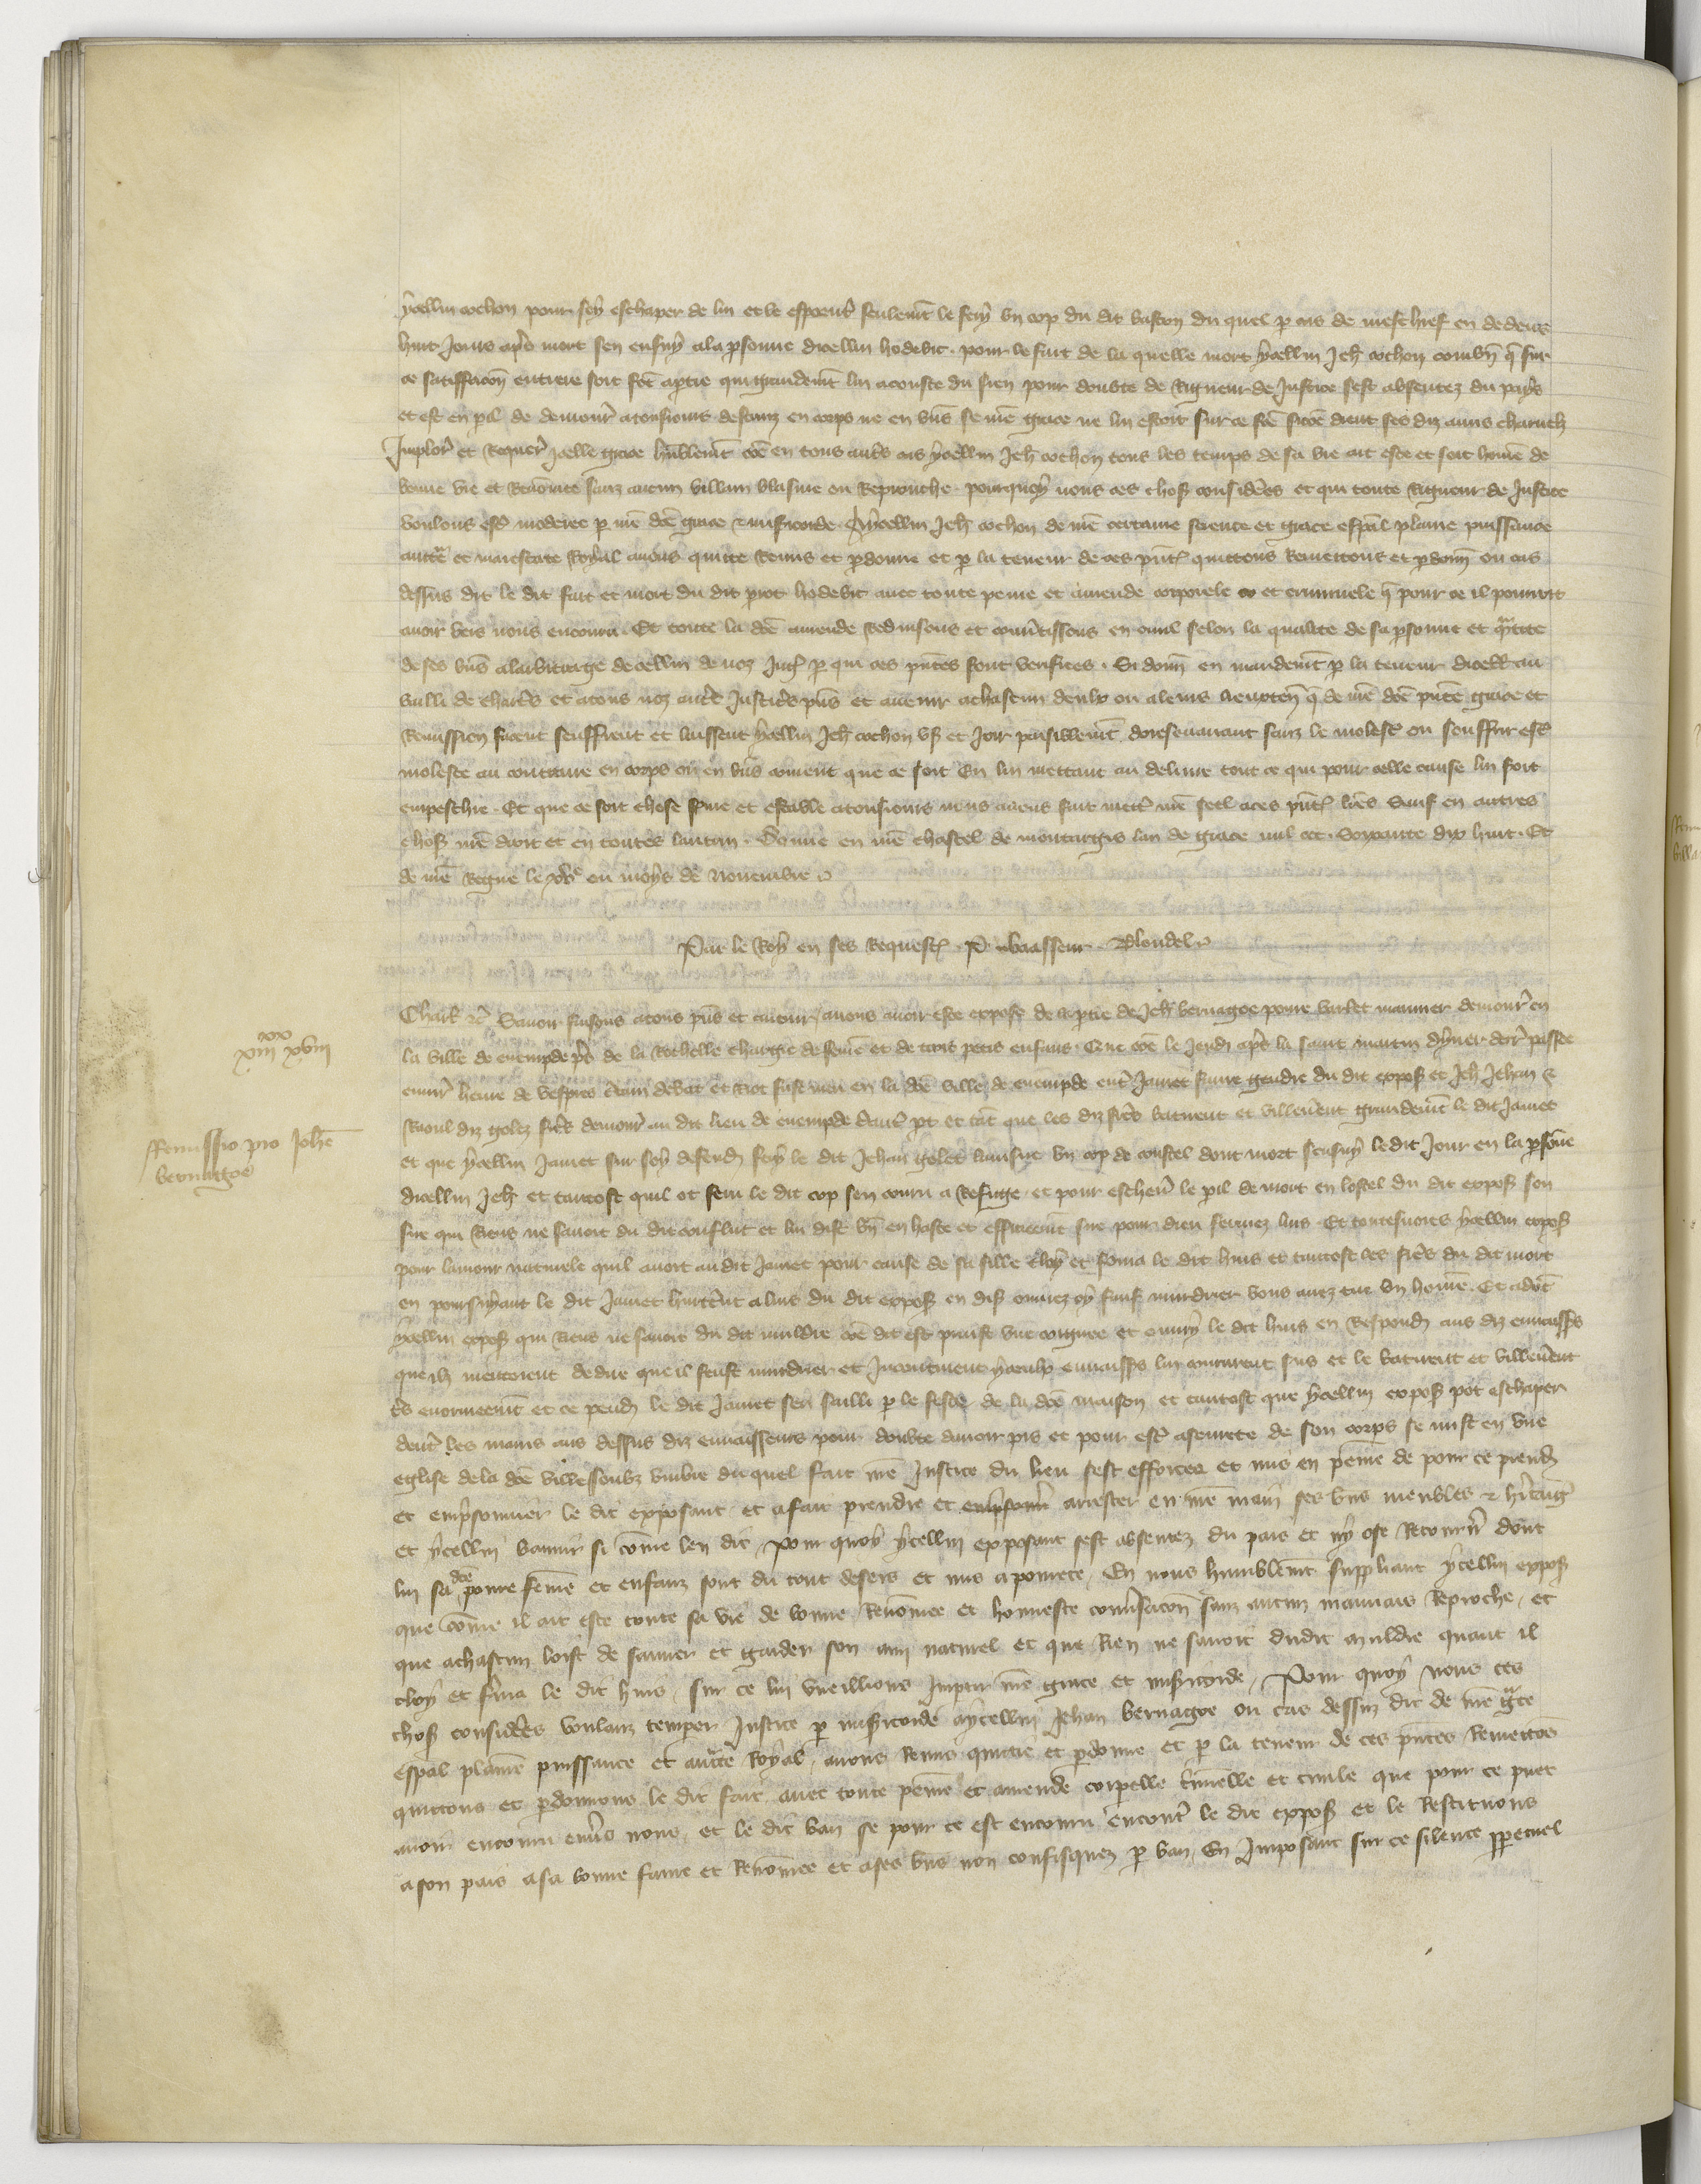 ycellui cochon pour soy eschaper de lui et le espoenter seulement le fery un cop du dit baston du quel par cas de meschief en dedens
huit Jours apres mort sen ensuy a la personne dicellui hodebit. pour le fait de la quelle mort ycellui Jeh cochon combien que sur
ce satiffacion entiere soit fete a partie qui grandement lui a couste du sien pour doubte de Rigueur de Justice sest absentez du pays
et est en peril de demourer a tousiours desfaiz en corps ne en biens se nostre grace ne lui estoit sur ce fete sicome dient ses diz amis charnelz
Implorer et Requerir ycelle grace humblement come en touz autres cas ycellui Jeh cochon tous les temps de sa vie ait este et soit home de
bonne vie et Renomee sanz aucun villain blasme ou Reprouche. pourquoy nous ces choses considerees et qui toute Rigueur de Justice
voulons estre moderee par nostre dce grace et misericorde. A ycellui Jeh cochon de nostre certaine science et grace especial plaine puissance
auctorite et maieste Royal avons quitte Remis et pardonne et par la teneur de ces presentes quittons Remettons et pardonnons ou cas
dessus dit le dit fait et mort du dit prot hodebit avec toute peine et amende corporele et criminele que pour ce il pourroit
avoir vers nous encouru. Et toute la dce amende Reduisons et convertissons en civil selon la qualite de sa personne et quantite
de ses biens a larbitrage de cellui de noz Juges par qui ces presentes sont verifiees. Si donnons en mandement par la teneur dicelles au
bailli de chartres et a tous noz autres Justiciers presens et avenir a chascun deulx ou a leurs lieuxtenans que de nostre dce presente grace et
Remission facent seuffrent et laissent ycellui Jeh cochon user et Joir paisiblement doresenavant sanz le molester ou souffrir estre
moleste au contraire en corps ou en biens coment que ce soit En lui mettant au delivre tout ce qui pour celle cause lui soit
empeschie. Et que ce soit chose ferme et estable a tousiours nous avons fait mettre nostre seel a ces presentes lettres Sauf en autres
choses nostre droit et en toutes lautrui. Donne en nostre chastel de montargis lan de grace mil ccc. Soixante dix huit. Et
de nostre Regne le xve ou moys de Novembre
Par le Roy en ses Requestes. P. vbaasseur. Blondel
Charles etc Savoir faisons a tous presens et avenir avons avoir este expose de la partie de Jeh bernagoe povre varlet marinier demourant en
la ville de enempde pres de la Rochelle chargie de feme et de trois petis enfans. Que come le Jeudi apres la saint martin dyver derrenier passee
environ heure de vespres certain debat et Riot fust meu en la dce ville de enempde entre Jamet faure gendre du dit exposant et Jeh Jehan &
Raoul diz golez freres demourans au dit lieu de enempde dautre part et tant que les diz freres batirent et villenerent grandement le dit Jamet
et que ycellui Jamet sur soy defendant fery le dit Jehan golet lainsne un cop de coustel dont mort sensuy le dit Jour en la personne
dicellui Jeh et tantost quil ot feru le dit cop sen couru a Refuge et pour eschever le peril de mort en lostel du dit exposant son
sire qui Riens ne savoit du dit conflict et lui dist bien en haste et effreement sire pour dieu fermez luis. Et toutesvoies ycellui exposant
pour lamour naturele quil avoit au dit Jamet pour cause de sa fille cloy et ferma le dit huis et tantost les freres du dit mort
en poursuyvant le dit Jamet hurterent a luis du dit exposant en disant ouvrez cy faus murdrier vous avez tue un home. Et adonc
ycellui exposant qui Riens ne savoit du dit murdre come dit est prinst une coignee et ouvry le dit huis en Respondant aus diz envaisseurs
que ilz mentoient de dire que il feust murdrier et Incontinent yceulx envaisseurs lui coururent sus et le batirent et villenerent
tres enormement et ce pendant le dit Jamet sen sailli par le feste de la dce maison et tantost que ycellui exposant pot eschaper
dentre les mains aus dessus diz envaisseurs pour doubte davoir pis et pour estre a seurete de son corps se mist en une
eglise de la dce ville soubz umbre du quel fait nostre Justice du lieu sest efforcee et mis en peine de pour ce prendre
et emprisonner le dit exposant et a fait prendre et arrester en nostre main ses biens meubles & heritages
et ycellui bannir si come len dit, Pour quoy ycellui exposant sest absentez du pais et ny ose Retourner dont
lui sa dce povre feme et enfanz sont du tout desers et mis a povrete, En nous humblement suppliant ycellui exposant
que come il ait este toute sa vie de bonne Renomee et honneste conversacion sanz aucun mauvais Reproche, et
que a chascun loist de sauver et garder son ami naturel et que Rien ne savoit dudit murdre quant il
cloy et ferma le dit huis, sur ce lui vueillions Impartir nostre grace et misericorde, Pour quoy nous ces
choses considerees voulanz temperer Justice par misericorde a ycellui Jehan bernagoe ou cas dessuz dit de nostre grace
especial plaine puissance et auctorite Royal, avons Remis quittie et pardonne et par la teneur de ces presentes Remettons
quittons et pardonnons le dit fait avec toute peine et amende corporelle criminelle et civile que pour ce puet
avoir encouru envers nous, et le dit ban se pour ce est encouru encontre le dit exposant et le Restituons
a son pais a sa bonne fame et Renomee et a ses biens non confisquez par ban, En Imposant sur ce silence perpetuel
xx
xiiii xviii
Remissio pro Johanne
bernagoe